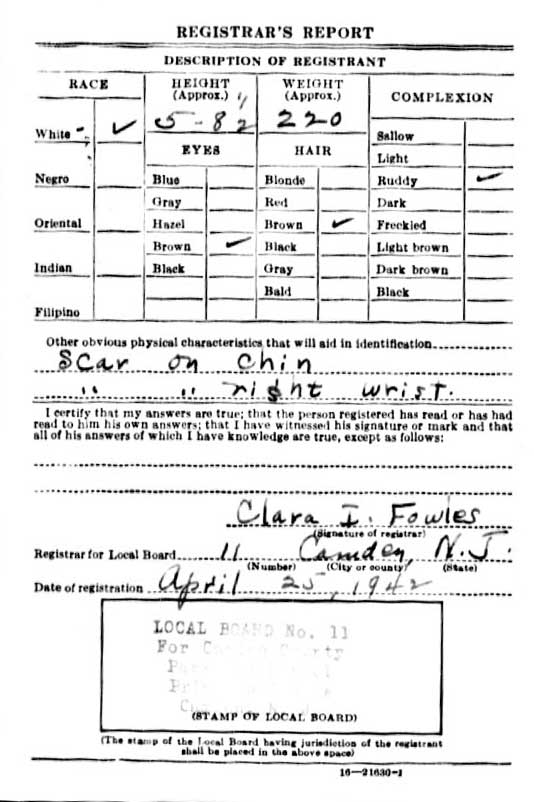 REGISTRAR'S REPORT
DESCRIPTION OF REGISTRANT
RACE
White ✓
Negro
Oriental
Indian
Filipino
HEIGHT
(Approx.)
5-8½
WEIGHT
(Approx.)
220
EYES
Blue
Gray
Hazel
Brown ✓
Black
HAIR
Blonde
Red
Brown ✓
Black
Gray
Bald
COMPLEXION
Sallow
Light
Ruddy ✓
Dark
Freckled
Light brown
Dark brown
Black
Other obvious physical characteristics that will aid in identification
Scar on chin
" " right wrist.
I certify that my answers are true; that the person registered has read or has had
read to him his own answers; that I have witnessed his signature or mark and that
all of his answers of which I have knowledge are true, except as follows:
Clara I. Fowles
(Signature of registrar)
Registrar for Local Board 11 Camden, N.J.
(Number) (City or county) (State)
Date of registration April 25, 1942
LOCAL BOARD No. 11
For County
(STAMP OF LOCAL BOARD)
(The stamp of the Local Board having jurisdiction of the registrant
shall be placed in the above space)
16—21630-1